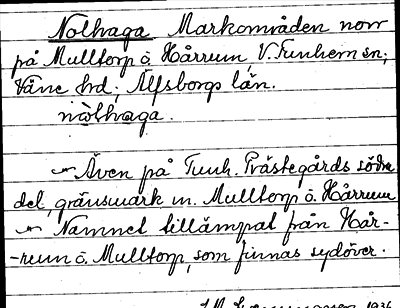 Nolhaga Markområden norr
på Mulltorp o. Hårrum V. Tunhem sn;
Väne hd; Älfsborgs län.
nòlhaga.
~ Även på Tunh. Prästegårds södra
del, gränsmark m. Mulltorp o. Hårrum
~ Namnet tillämpat från Hår-
-rum o. Mulltorp, som finnas sydöver.
1936